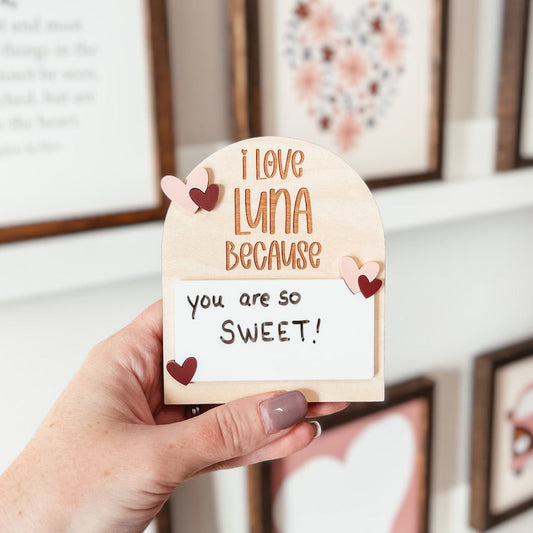 I LOVE
LUNA
BECAUSE
you are so
SWEET!
and most
things in the
not be seen,
but are
the heart.